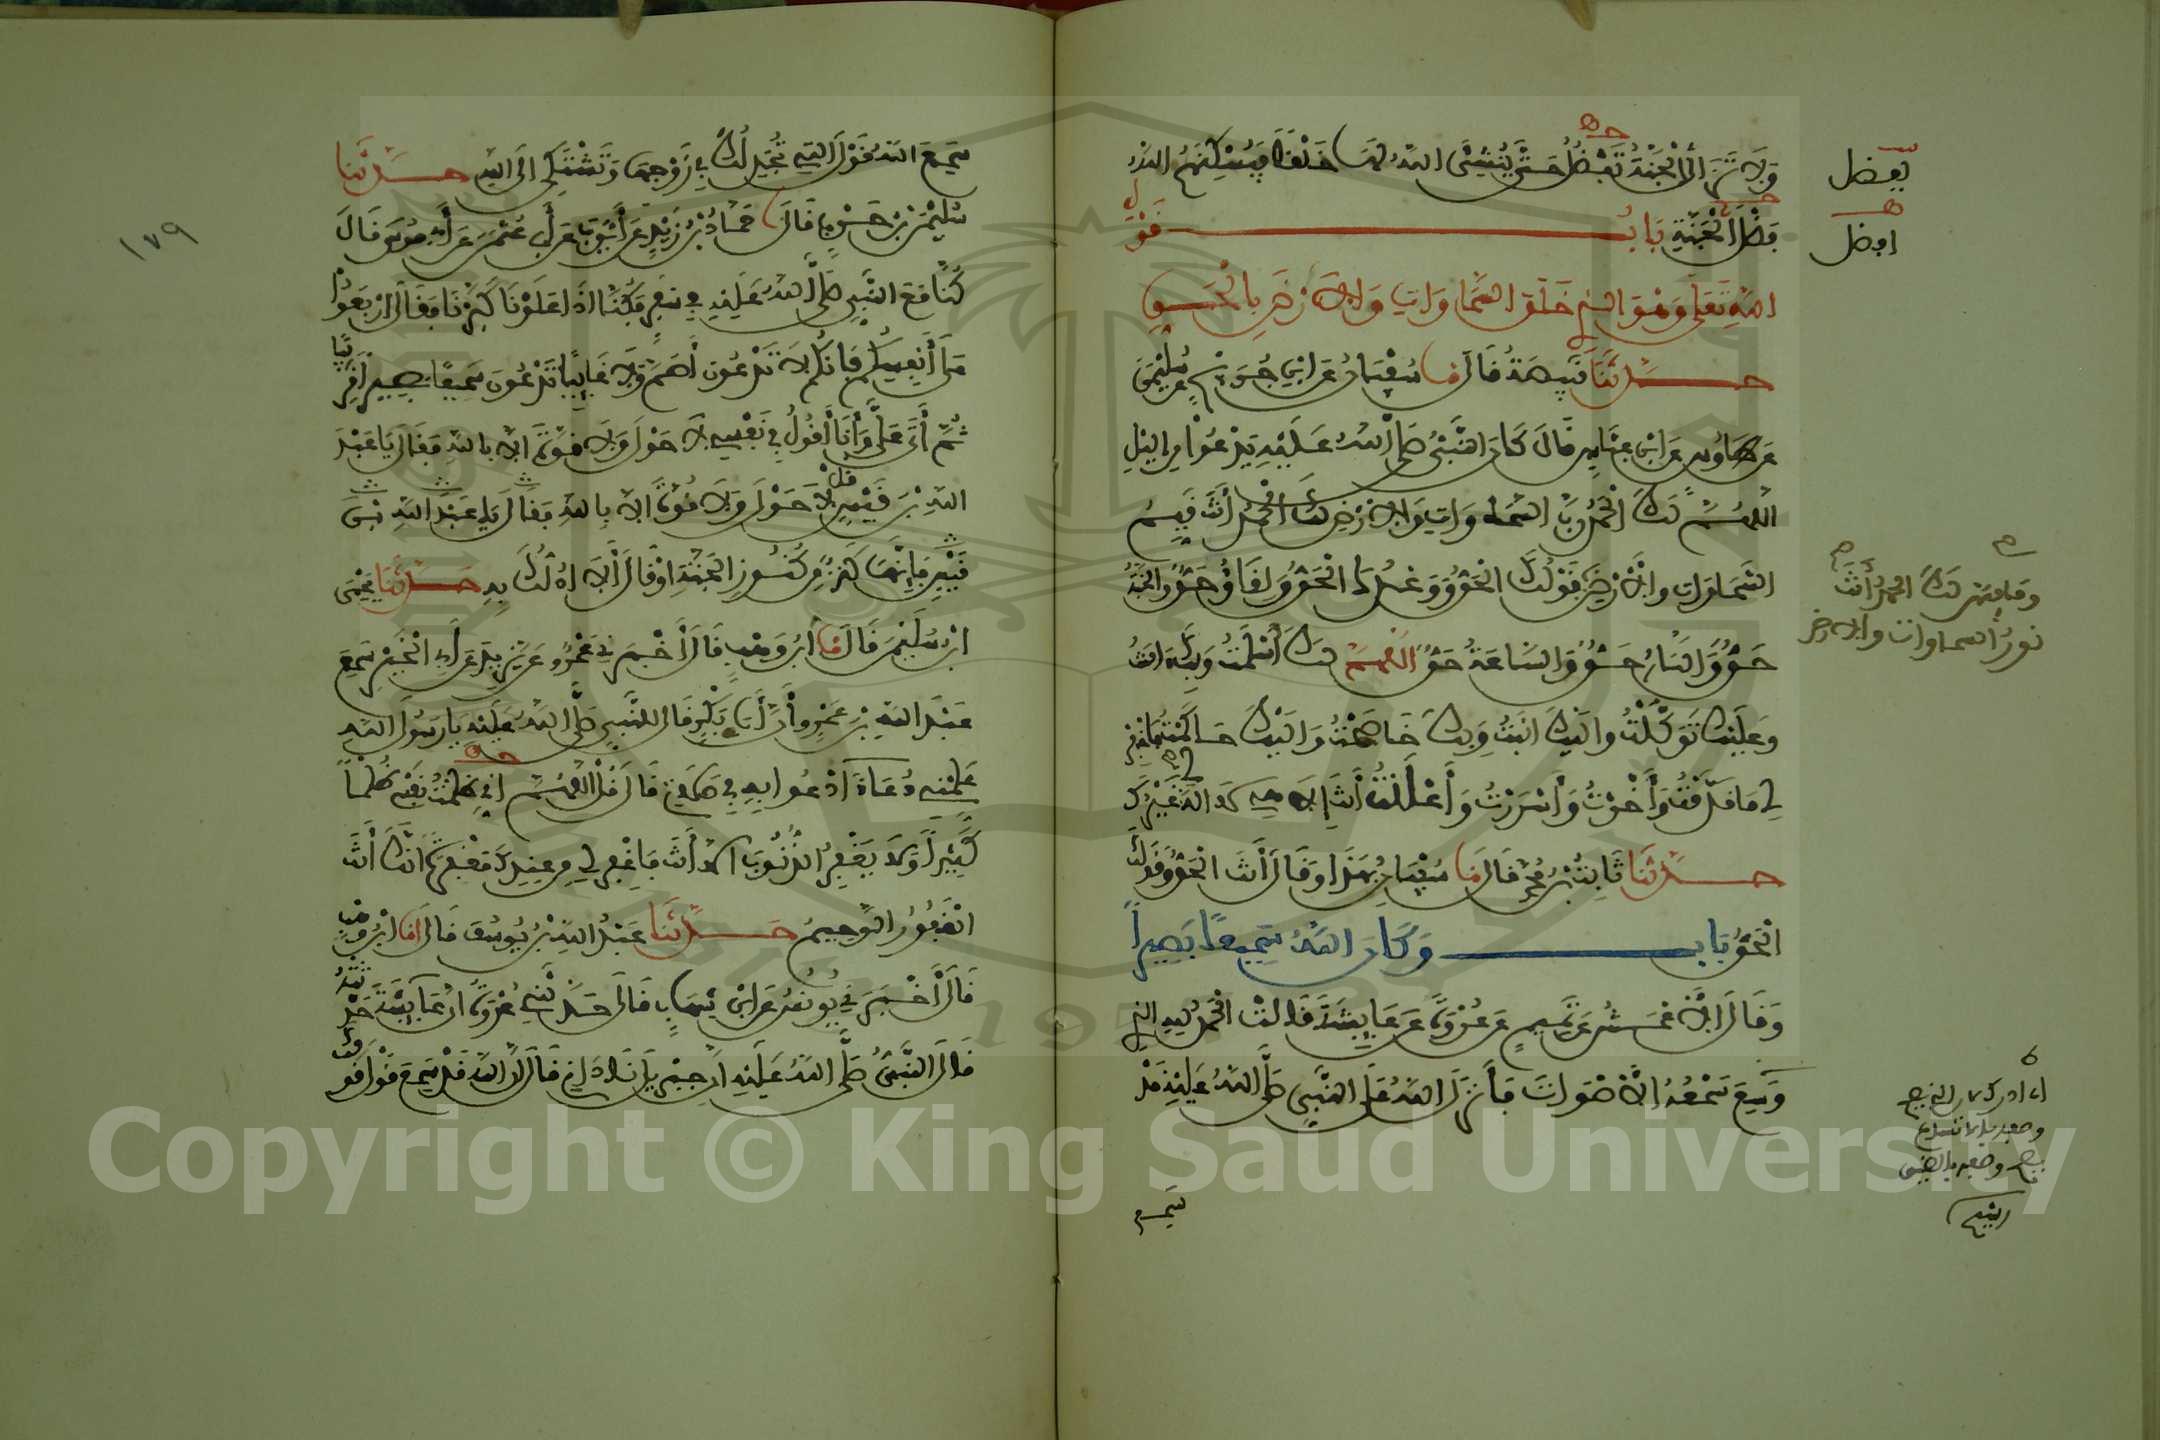 وَلَا تَزَالُ الْجَنَّةُ تَفْضُلُ حَتَّى يُنْشِئَ اللهُ لَهَا خَلْقًا فَيُسْكِنَهُمُ اللهُ
فَضْلَ الْجَنَّةِ بَابُ قَوْلِ
اللهِ تَعَلَى وَهُوَ الذِي خَلَقَ السَّمَاوَاتِ وَالَارْضَ بِالْحَقِّ
حَدَّثَنَا قَبِيصَةُ قَالَ نا سُفْيَانُ عَنِ ابْنِ جُرَيْجٍ عَنْ سُلَيْمَنَ
عَنْ طَاوُسٍ عَنِ ابْنِ عَبَّاسٍ قَالَ كَانَ النَّبِيُّ صَلَّى اللهُ عَلَيْهِ يَدْعُوا مِنَ اليْلِ
اللَّهُمَّ لَكَ الْحَمْدُ رَبَّ السَّمَاوَاتِ وَالَارْضِ لَكَ الْحَمْدُ أَنْتَ قَيِّمُ
السَّمَاوَاتِ وَالَارْضِ قَوْلُكَ الْحَقُّ وَوَعْدُكَ الْحَقُّ وَلِقَاؤُكَ حَقٌّ وَالْجَنَّةُ
حَقٌّ وَالنَّارُ حَقٌّ وَالسَّاعَةُ حَقٌّ اللَّهُمَّ لَكَ أَسْلَمْتُ وَبِكَ ءَامَنْتُ
وَعَلَيْكَ تَوَكَّلْتُ وَإِلَيْكَ أَنَبْتُ وَبِكَ خَاصَمْتُ وَإِلَيْكَ حَاكَمْتُ فَاغْفِرْ
لِي مَا قَدَّمْتُ وَأَخَّرْتُ وَأَسْرَرْتُ وَأَعْلَنْتُ أَنْتَ إِلَاهِي لَا إِلَهَ غَيْرُكَ
حَدَّثَنَا ثَابِتُ بْنُ مُحَمَّدٍ قَالَ نا سُفْيَانُ بِهَذَا وَقَالَ أَنْتَ الْحَقُّ وَقَوْلُكَ
الْحَقُّ بَاب وَكَانَ اللهُ سَمِيعًا بَصِيرًا
وَقَالَ الَاعْمَشُ عَنْ تَمِيمٍ عَنْ عُرْوَةَ عَنْ عَائِشَةَ قَالَتْ الْحَمْدُ لِلهِ الذِي
وَسِعَ سَمْعُهُ الَاصْوَاتَ فَأَنْزَلَ اللهُ عَلَى النَّبِيِّ صَلَّى اللهُ عَلَيْهِ قَدْ
سَمِعَ
يفضل
افضل
وما فيهن لك الحمد أنت
نور السماوات والارض
سَمِعَ اللهُ قَوْلَ التِي تُجَدِلُكَ فِي زَوْجِهَا وَتَشْتَكِي إِلَى اللهِ حَدَّثَنَا
سُلَيْمَنُ بْنُ حَرْبٍ قَالَ نا حَمَّادُ بْنُ زَيْدٍ عَنْ أَيُّوبَ عَنْ أَبِي عُثْمَنَ عَنْ أَبِي مُوسَى قَالَ
كُنَّا مَعَ النَّبِيِّ صَلَّى اللهُ عَلَيْهِ فِي سَفَرٍ فَكُنَّا إِذَا عَلَوْنَا كَبَّرْنَا فَقَالَ ارْبَعُوا
عَلَى أَنْفُسِكُمْ فَإِنَّكُمْ لَا تَدْعُونَ أَصَمَّ وَلَا غَائِبًا تَدْعُونَ سَمِيعًا بَصِيرًا قَرِيبًا
ثُمَّ أَتَى عَلَيَّ وَأَنَا أَقُولُ فِي نَفْسِي لَا حَوْلَ وَلَا قُوَّةَ إِلَّا بِاللهِ فَقَالَ يَا عَبْدَ
اللهِ بْنَ قَيْسٍ قُلْ لَا حَوْلَ وَلَا قُوَّةَ إِلَّا بِاللهِ فَقَالَ يَا عَبْدَ اللهِ بْنَ
قَيْسٍ فَإِنَّهَا كَنْزٌ مِنْ كُنُوزِ الْجَنَّةِ أَوْ قَالَ أَلَا أَدُلُّكَ بِهِ حَدَّثَنَا يَحْيَى
ابْنُ سُلَيْمَنَ قَالَ نا ابْنُ وَهْبٍ قَالَ أَخْبَرَنِي عَمْرٌو عَنْ يَزِيدَ عَنْ أَبِي الْخَيْرِ سَمِعَ
عَبْدَ اللهِ بْنَ عَمْرٍو أَنَّ أَبَا بَكْرٍ قَالَ لِلنَّبِيِّ صَلَّى اللهُ عَلَيْهِ يَا رَسُولَ اللهِ
عَلِّمْنِي دُعَاءً أَدْعُوا بِهِ فِي صَلَاتِي قَالَ قُلْ اللَّهُمَّ إِنِّي ظَلَمْتُ نَفْسِي ظُلْمًا
كَثِيرًا وَلَا يَغْفِرُ الذُّنُوبَ إِلَّا أَنْتَ فَاغْفِرْ لِي مِنْ عِنْدِكَ مَغْفِرَةً إِنَّكَ أَنْتَ
الْغَفُورُ الرَّحِيمُ حَدَّثَنَا عَبْدُ اللهِ بْنُ يُوسُفَ قَالَ انا ابْنُ وَهْبٍ
قَالَ أَخْبَرَنِي يُونُسُ عَنِ ابْنِ شِهَابٍ قَالَ حَدَّثَنِي عُرْوَةُ أَنَّ عَائِشَةَ حَدَّثَتْهُ
قَالَ النَّبِيُّ صَلَّى اللهُ عَلَيْهِ إِنَّ جِبْرِيلَ نَادَانِي قَالَ إِنَّ اللهَ قَدْ سَمِعَ قَوْلَ قَوْمِكَ
١٧٩
Copyright © King Saud University